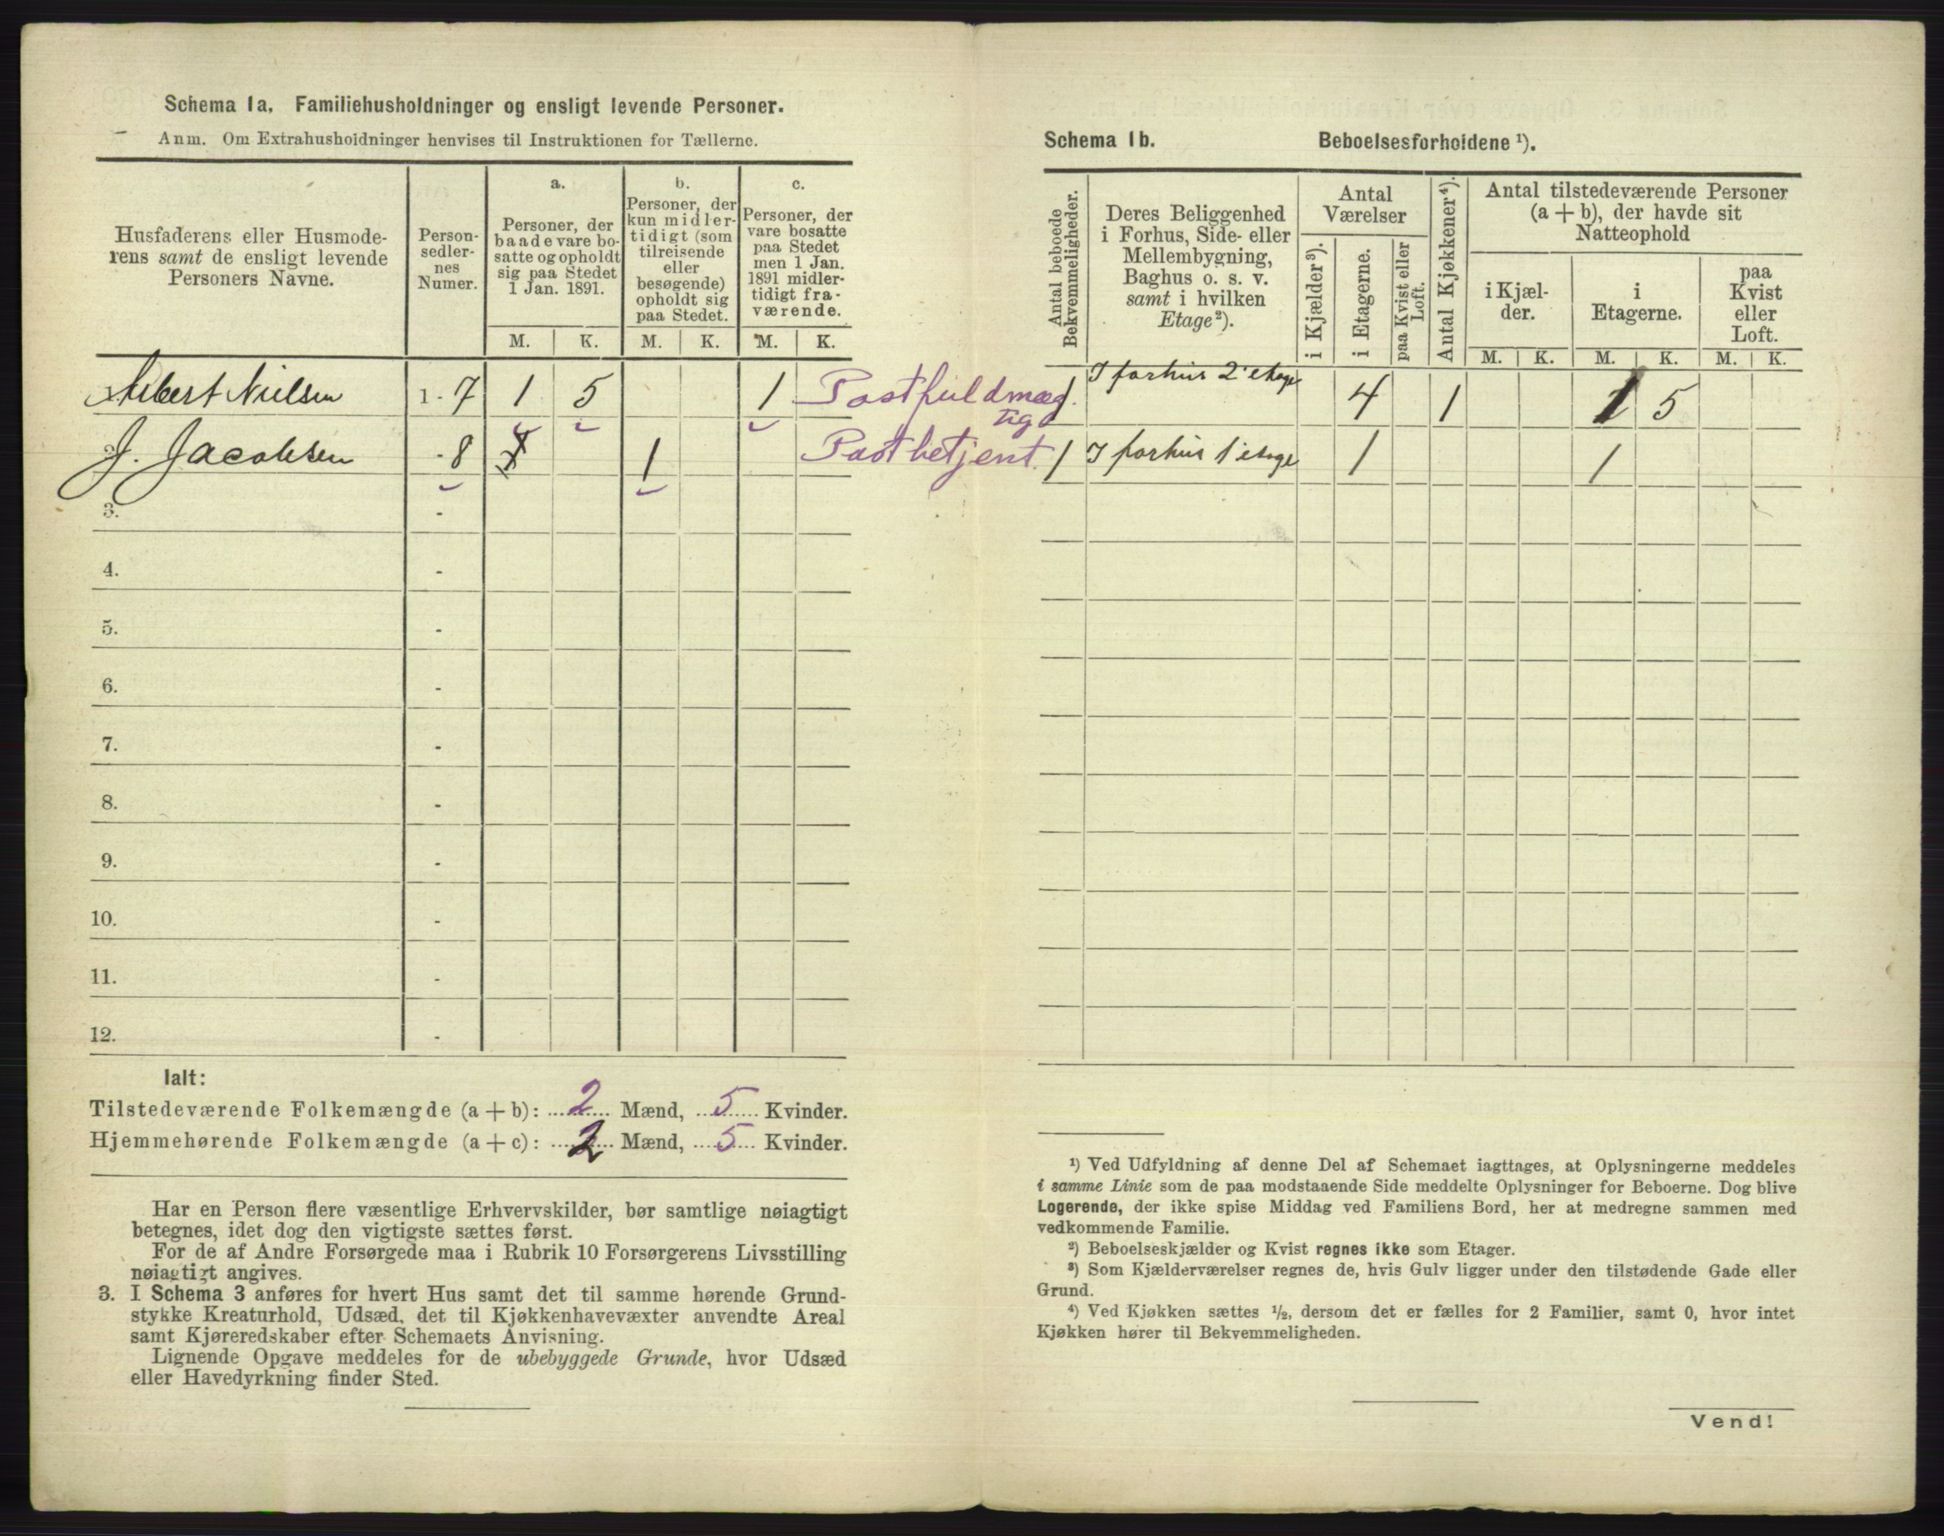 Schema 1a. Familiehusholdninger og ensligt levende Personer.
Anm. Om Extrahusholdninger henvises til Instruktionen for Tællerne.
Husfaderens eller Husmode-
rens samt de ensligt levende
Personers Navne.
Person-
sedler-
nes
Numer.
a.
Personer, der
baade vare bo-
satte og opholdt
sig paa Stedet
1 Jan. 1891.
b.
Personer, der
kun midler-
tidigt (som
tilreisende
eller
besøgende)
opholdt sig
paa Stedet.
c.
Personer, der
vare bosatte
paa Stedet
men 1 Jan.
1891 midler-
tidigt fra-
værende.
M. K. M. K. M. K.
Albert Nielsen 1 - 7 1 5 1 Postfuldmæg
tig
J. Jacobsen - 8 1 Postbetjent.
3. -
4. -
5. -
6. -
7. -
8. -
9. -
10. -
11. -
12. -
Ialt:
Tilstedeværende Folkemængde (a + b): 2 Mænd, 5 Kvinder.
Hjemmehørende Folkemængde (a + c): 2 Mænd, 5 Kvinder.
Har en Person flere væsentlige Erhvervskilder, bør samtlige nøiagtigt
betegnes, idet dog den vigtigste sættes først.
For de af Andre Forsørgede maa i Rubrik 10 Forsørgerens Livsstilling
nøiagtigt angives.
3. I Schema 3 anføres for hvert Hus samt det til samme hørende Grund-
stykke Kreaturhold, Udsæd, det til Kjøkkenhavevæxter anvendte Areal
samt Kjøreredskaber efter Schemaets Anvisning.
Lignende Opgave meddeles for de ubebyggede Grunde, hvor Udsæd
eller Havedyrkning finder Sted.
Schema 1b. Beboelsesforholdene ¹).
Antal beboede
Bekvemmeligheder.
Deres Beliggenhed
i Forhus, Side- eller
Mellembygning,
Baghus o. s. v.
samt i hvilken
Etage²).
Antal
Værelser
i Kjælder³).
i Etagerne.
paa Kvist eller
Loft.
Antal Kjøkkener⁴).
Antal tilstedeværende Personer
(a + b), der havde sit
Natteophold
i Kjæl-
der.
i
Etagerne.
paa
Kvist
eller
Loft.
M. K. M. K. M. K.
1 I forhus 2 etage 4 1 1 5
1 I forhus 1 etage 1 1
¹) Ved Udfyldning af denne Del af Schemaet iagttages, at Oplysningerne meddeles
i samme Linie som de paa modstaaende Side meddelte Oplysninger for Beboerne. Dog blive
Logerende, der ikke spise Middag ved Familiens Bord, her at medregne sammen med
vedkommende Familie.
²) Beboelseskjælder og Kvist regnes ikke som Etager.
³) Som Kjælderværelser regnes de, hvis Gulv ligger under den tilstødende Gade eller
Grund.
⁴) Ved Kjøkken sættes ½, dersom det er fælles for 2 Familier, samt 0, hvor intet
Kjøkken hører til Bekvemmeligheden.
Vend!